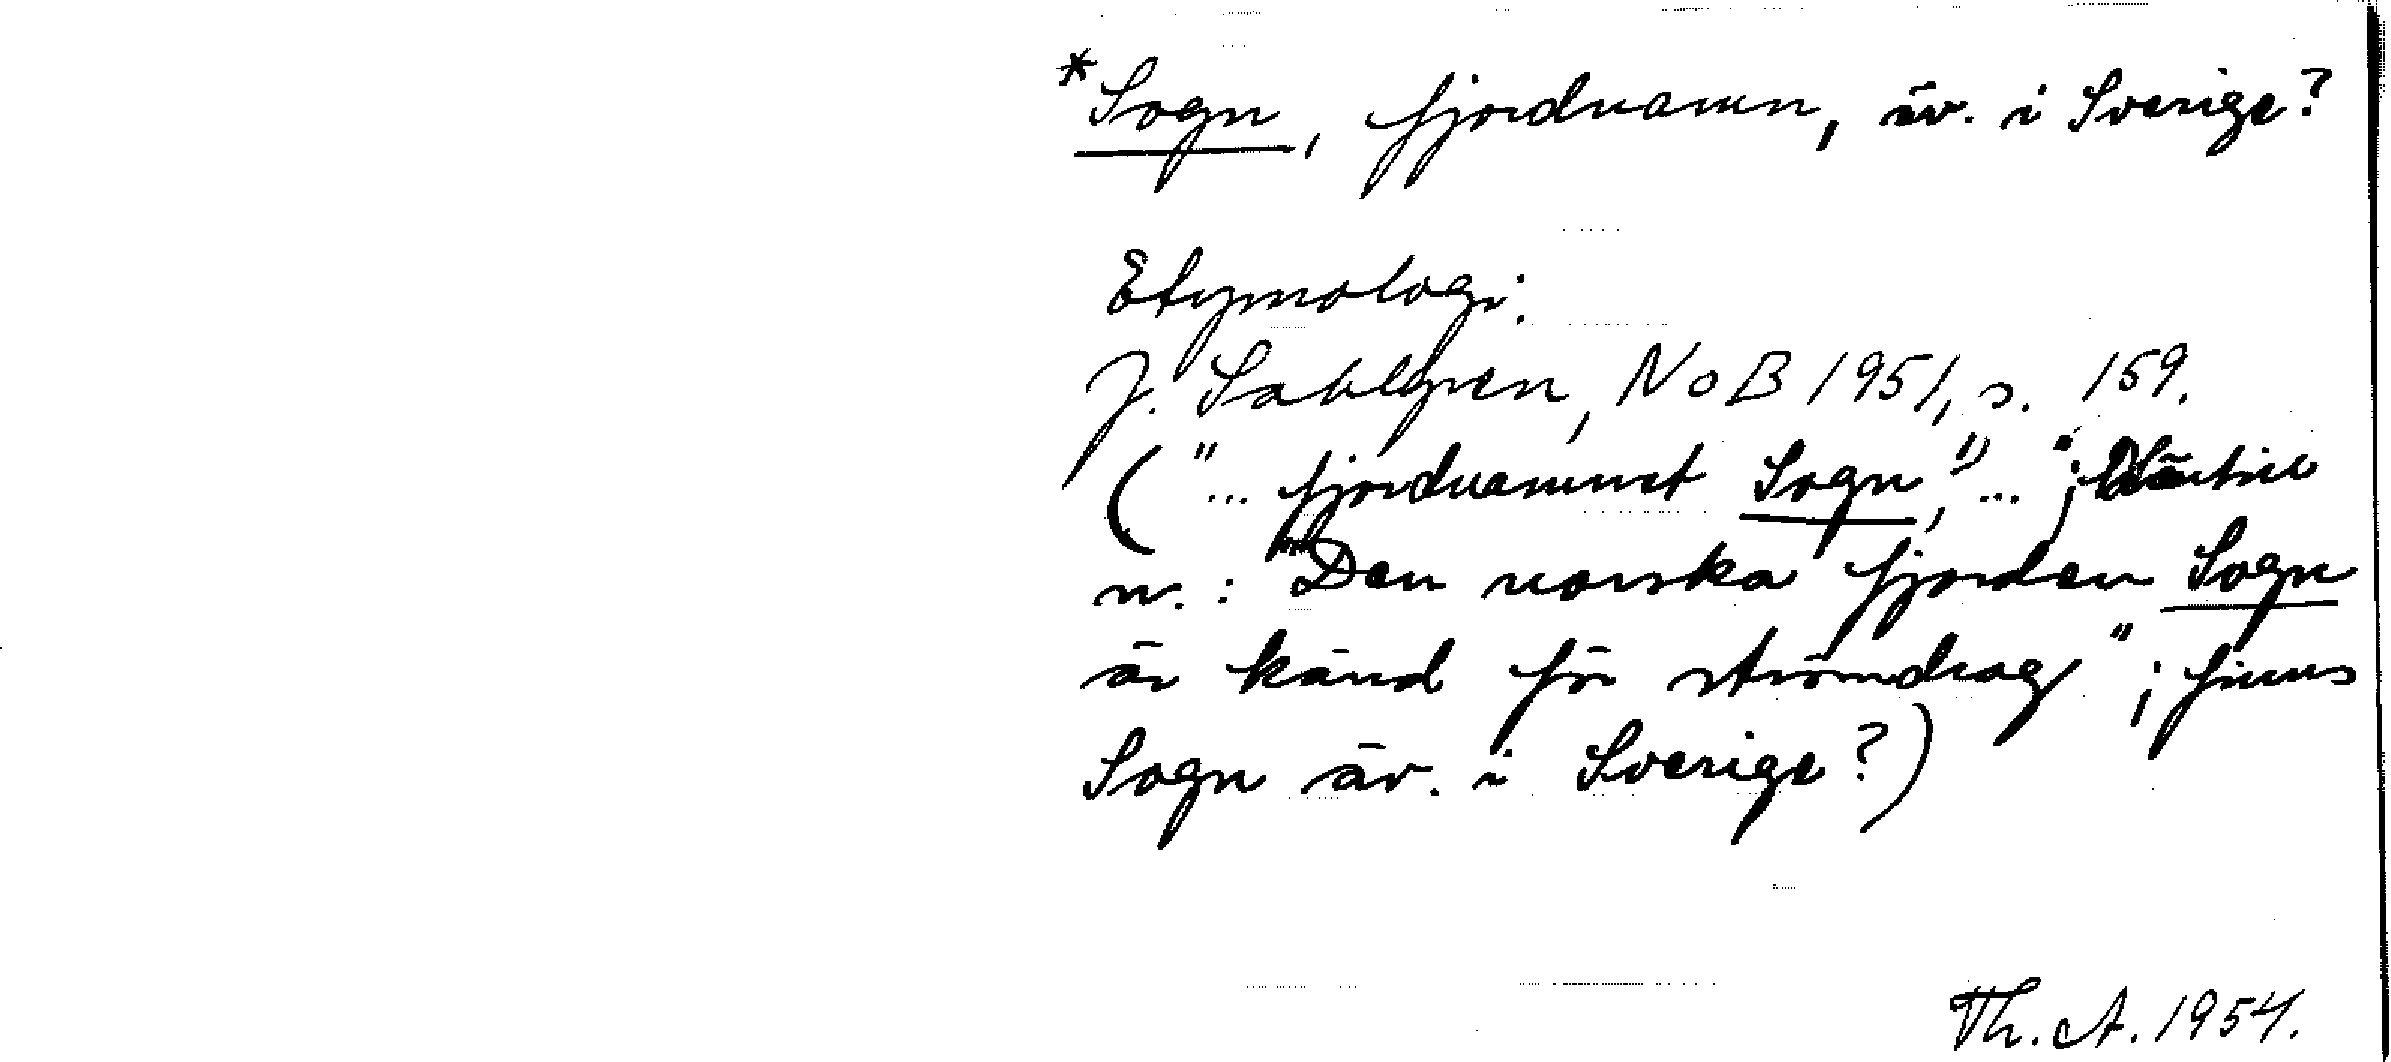 *Sogn, fjordnamn, äv. i Sverige?
Etymologi:
J. Sahlgren, NoB 1951, s. 159.
("... fjordnamnet Sogn," ..."; därtill
n.: "Den norska fjorden Sogn
är känd för strömdrag"; finns
Sogn äv. i Sverige?)
Th. A. 1954.